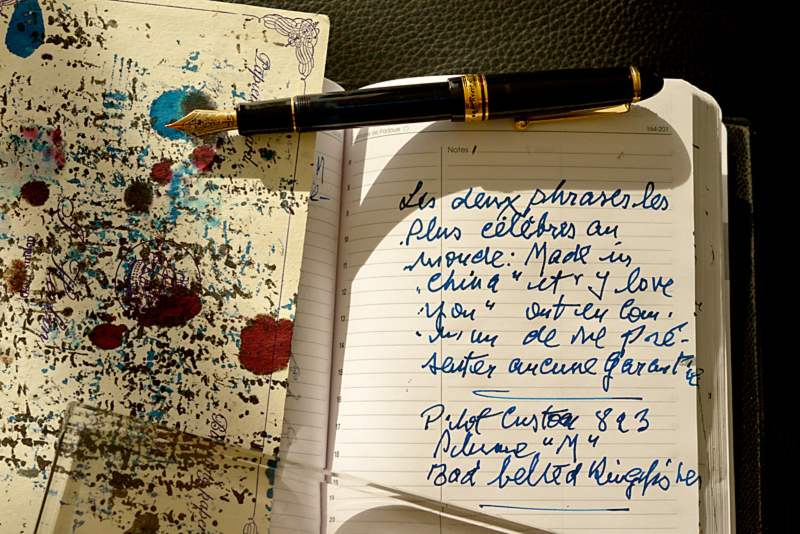 de Padoue
164-201
Notes
Les deux phrases les
plus célèbres au
monde: Made in
"China" et "I love
you" ont en com-
mun de ne pré-
senter aucune garantie
Pilot Custom 823
Plume "M"
Bad belted Kingfisher
8
9
10
11
12
13
14
15
16
17
18
19
20